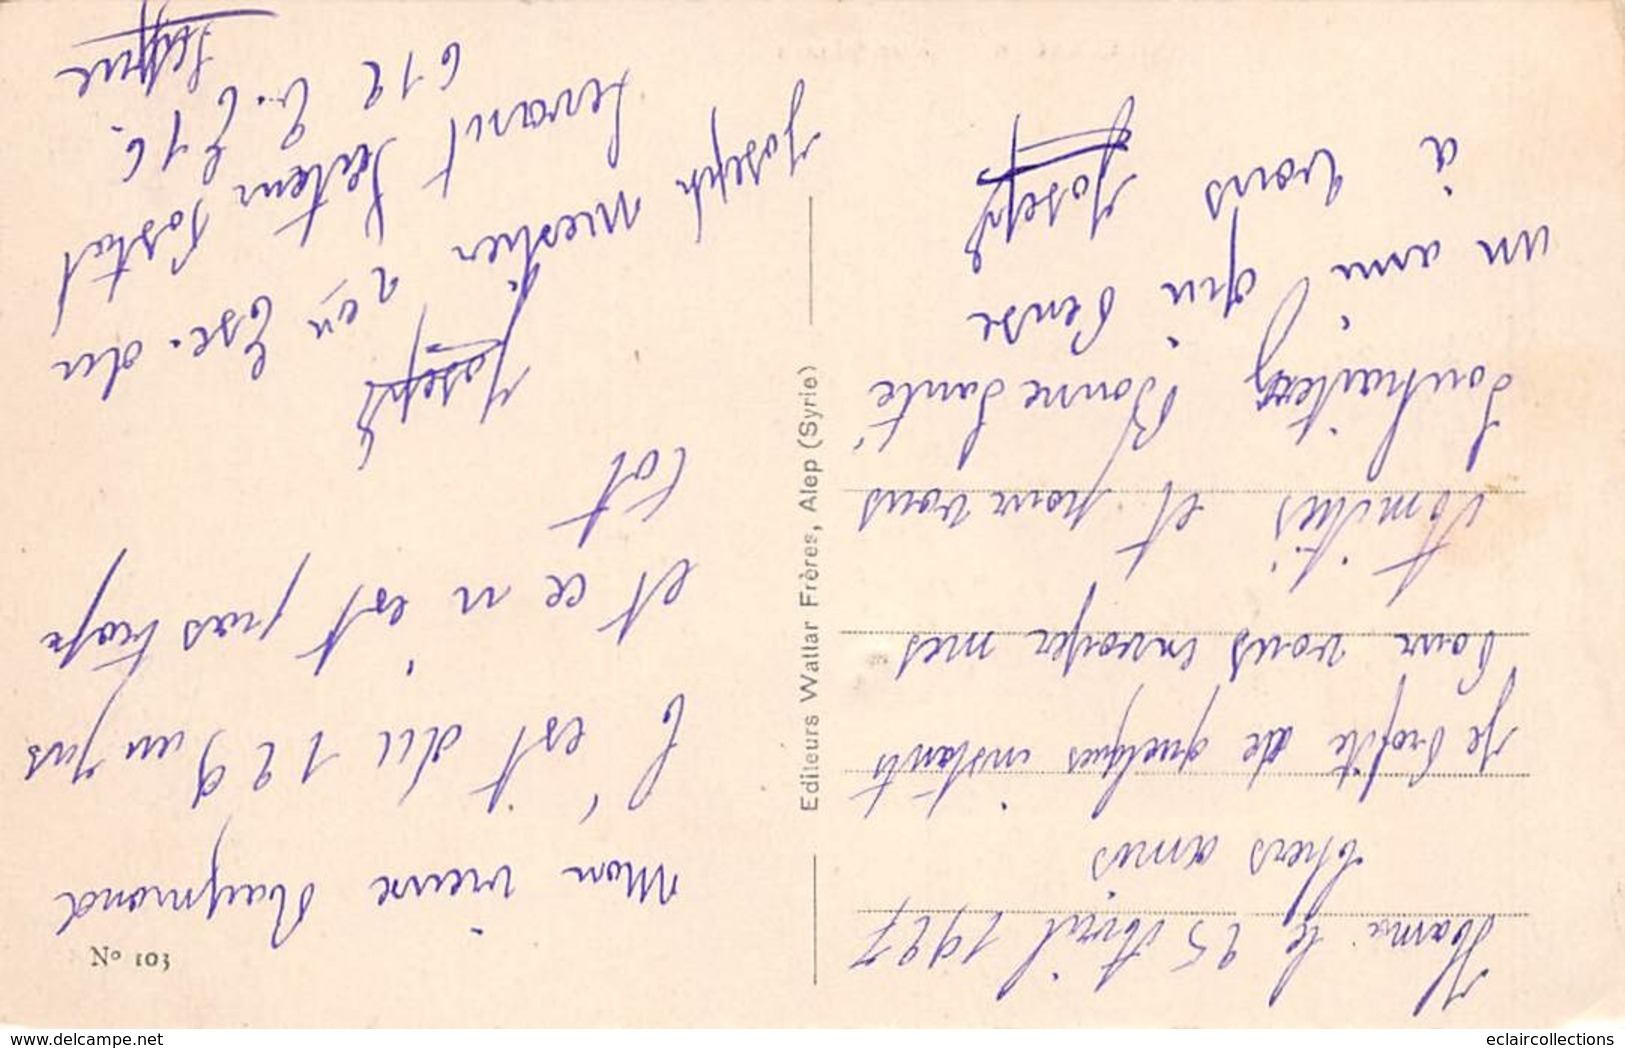 Hama le 25 Avril 1927
Chers amis
Je Profite de quelques instants
Pour vous envoyer mes
Amitiés et pour vous
Souhaiter Bonne Santé
un ami qui Pense
à vous
Joseph
Mon vieux Raymond
C'est du 129 au Jus
et ce n'est pas trop
tot
Joseph
Joseph
2 en Esc. du
Levant Secteur Postal
612
Editeurs Wattar Frères, Alep (Syrie)
No 103
eclaircollections